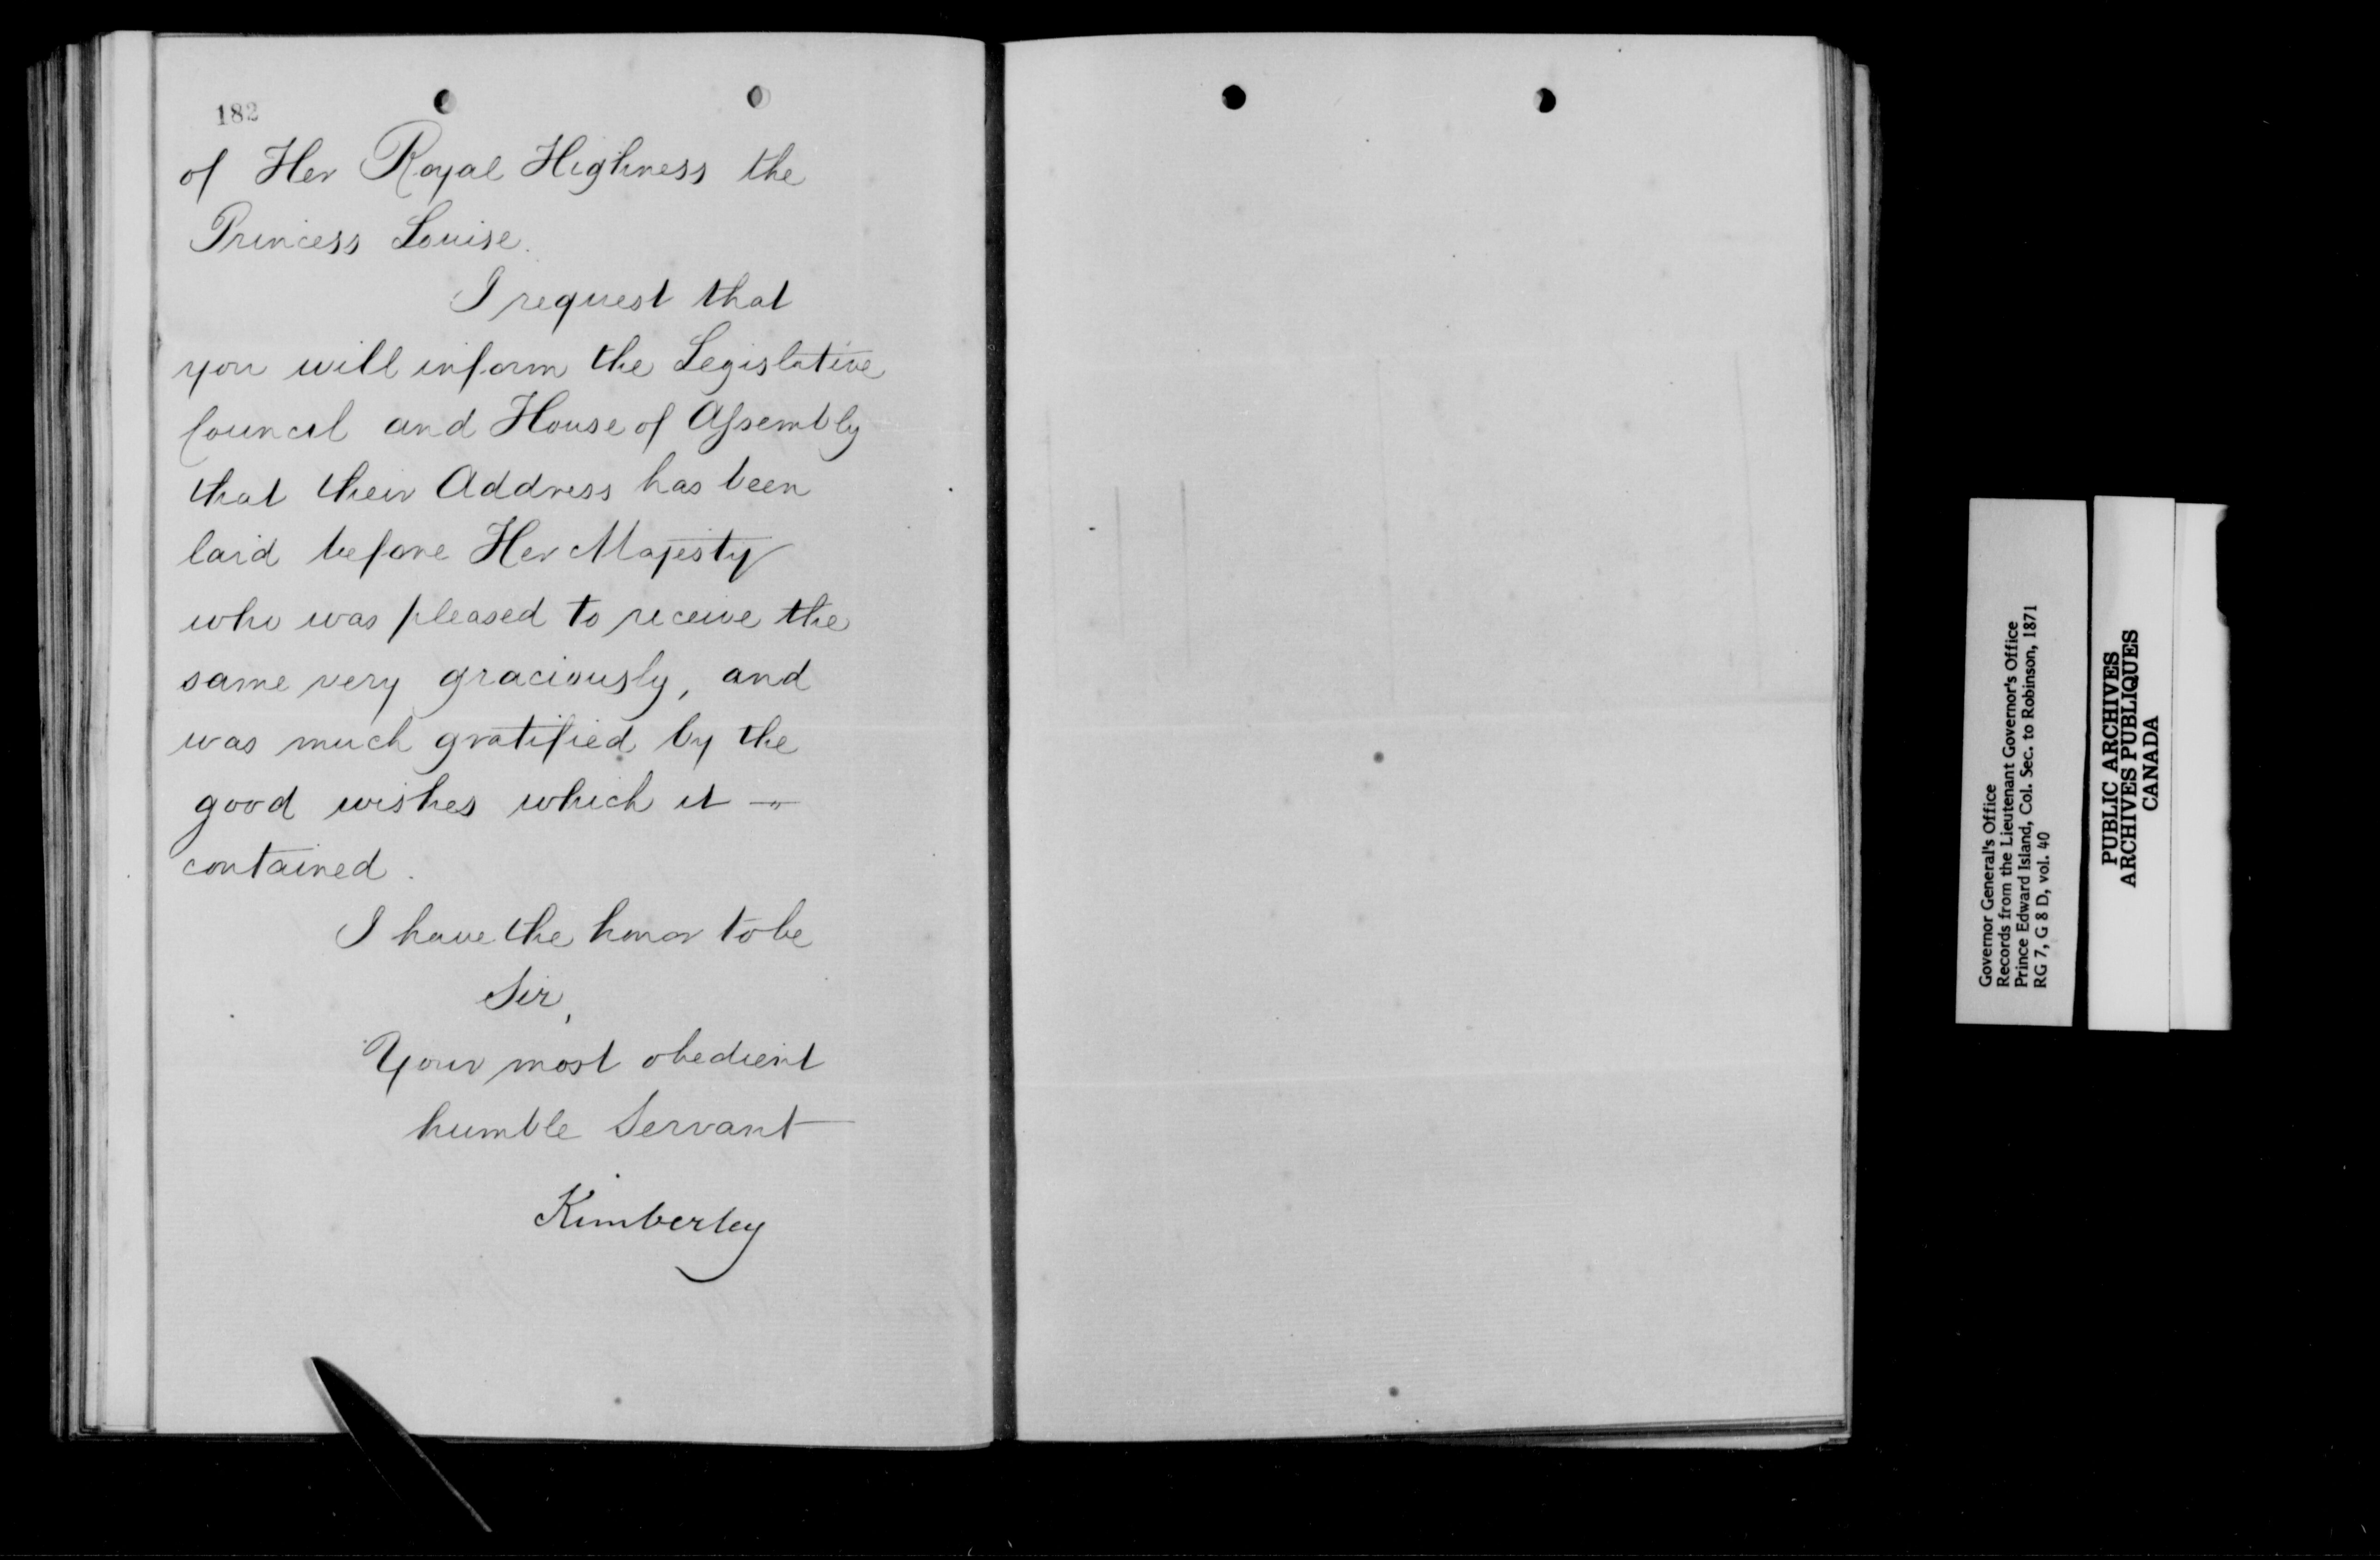 182
of Her Royal Highness the
Princess Louise.
I request that
you will inform the Legislative
Council and House of Assembly
that their Address has been
laid before Her Majesty
who was pleased to receive the
same very graciously, and
was much gratified by the
good wishes which it —
contained.
I have the honor to be
Sir,
Your most obedient
humble Servant
Kimberley
Governor General's Office
Records from the Lieutenant Governor's Office
Prince Edward Island, Col. Sec. to Robinson, 1871
RG 7, G 8 D, vol. 40
PUBLIC ARCHIVES
ARCHIVES PUBLIQUES
CANADA